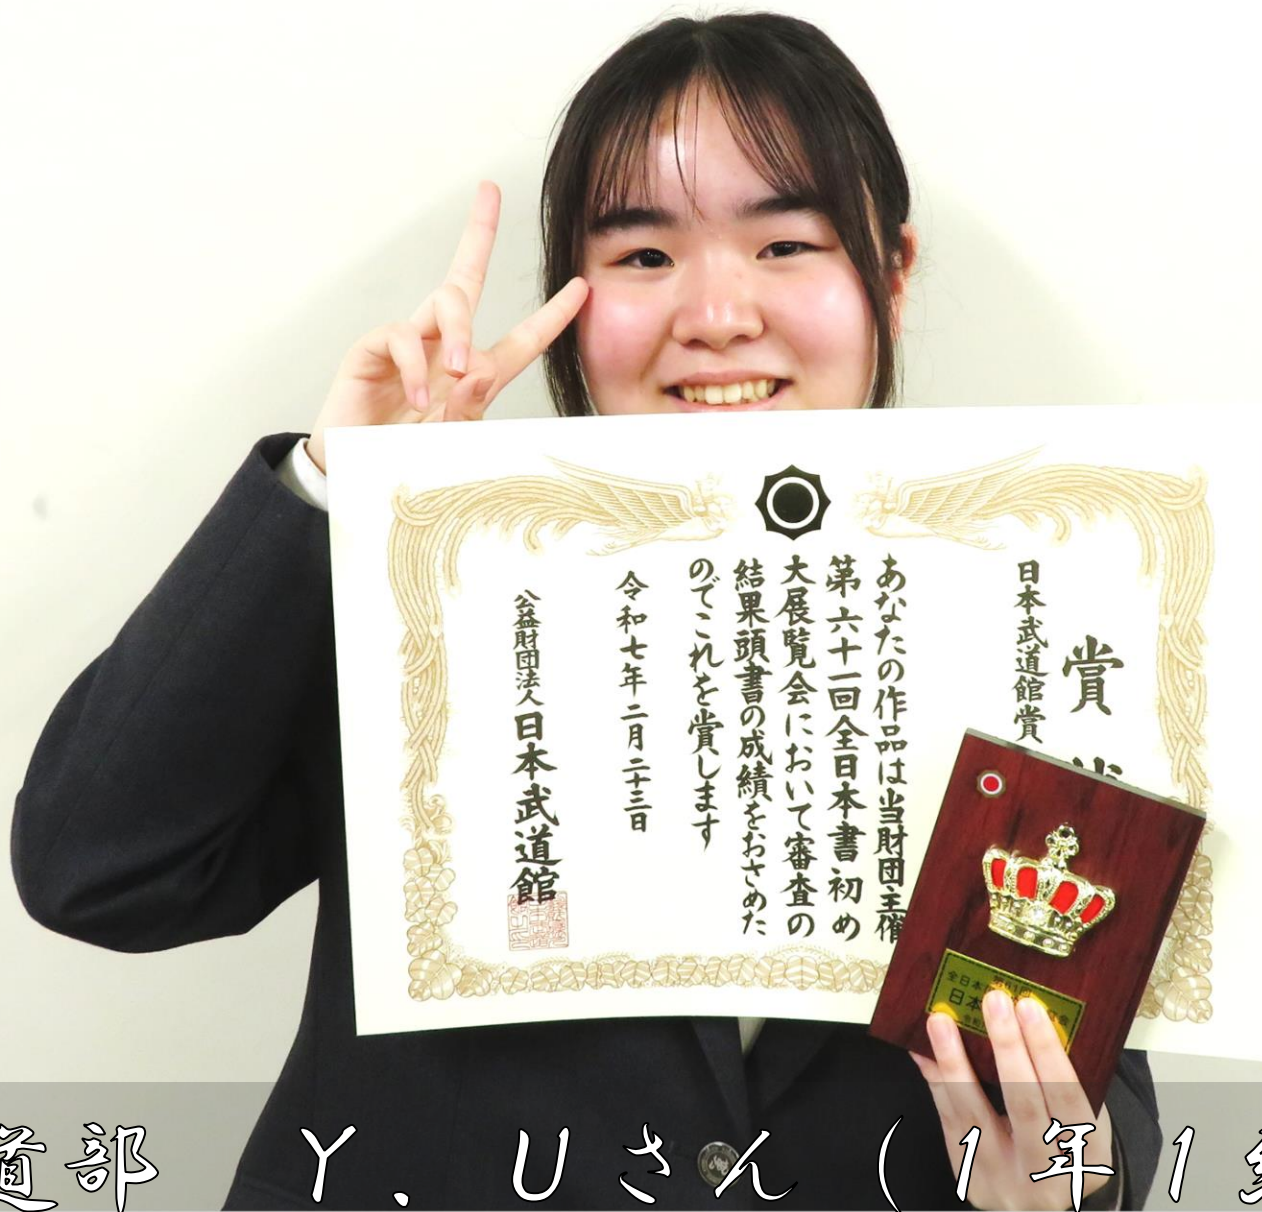 賞
日本武道館賞
あなたの作品は当財団主催
第六十一回全日本書初め
大展覧会において審査の
結果頭書の成績をおさめた
のでこれを賞します
令和七年二月二十三日
公益財団法人日本武道館
全日本
日本
道部 Y.Uさん(1年1